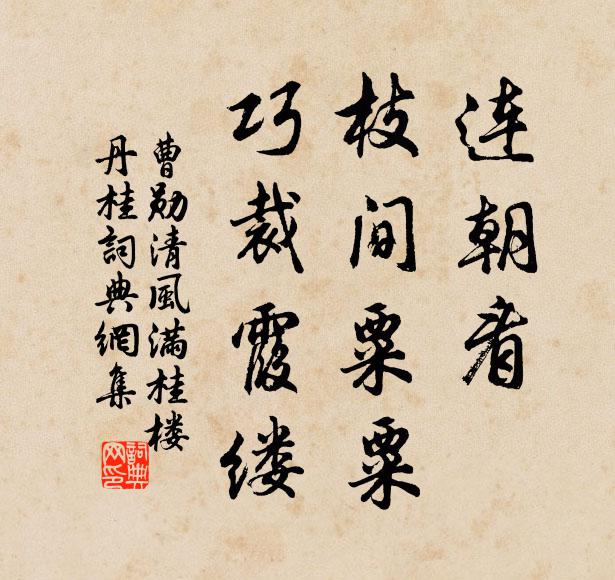 连朝看
枝间粟粟
巧裁霞缕
曹勋清風满桂楼
丹桂詞典網集
詞典网印